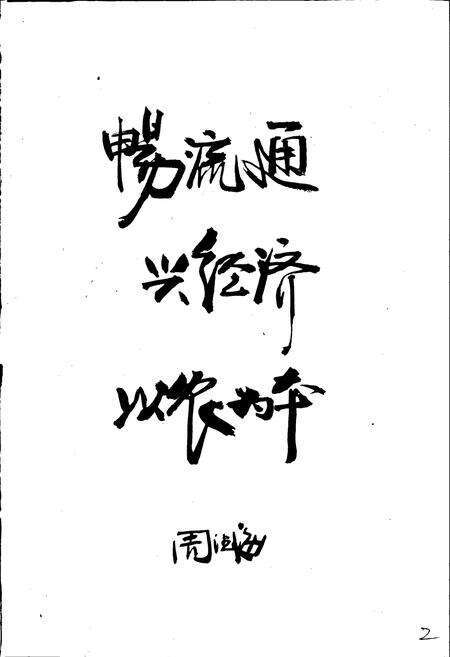 暢流通
兴经济
以农为本
周
2